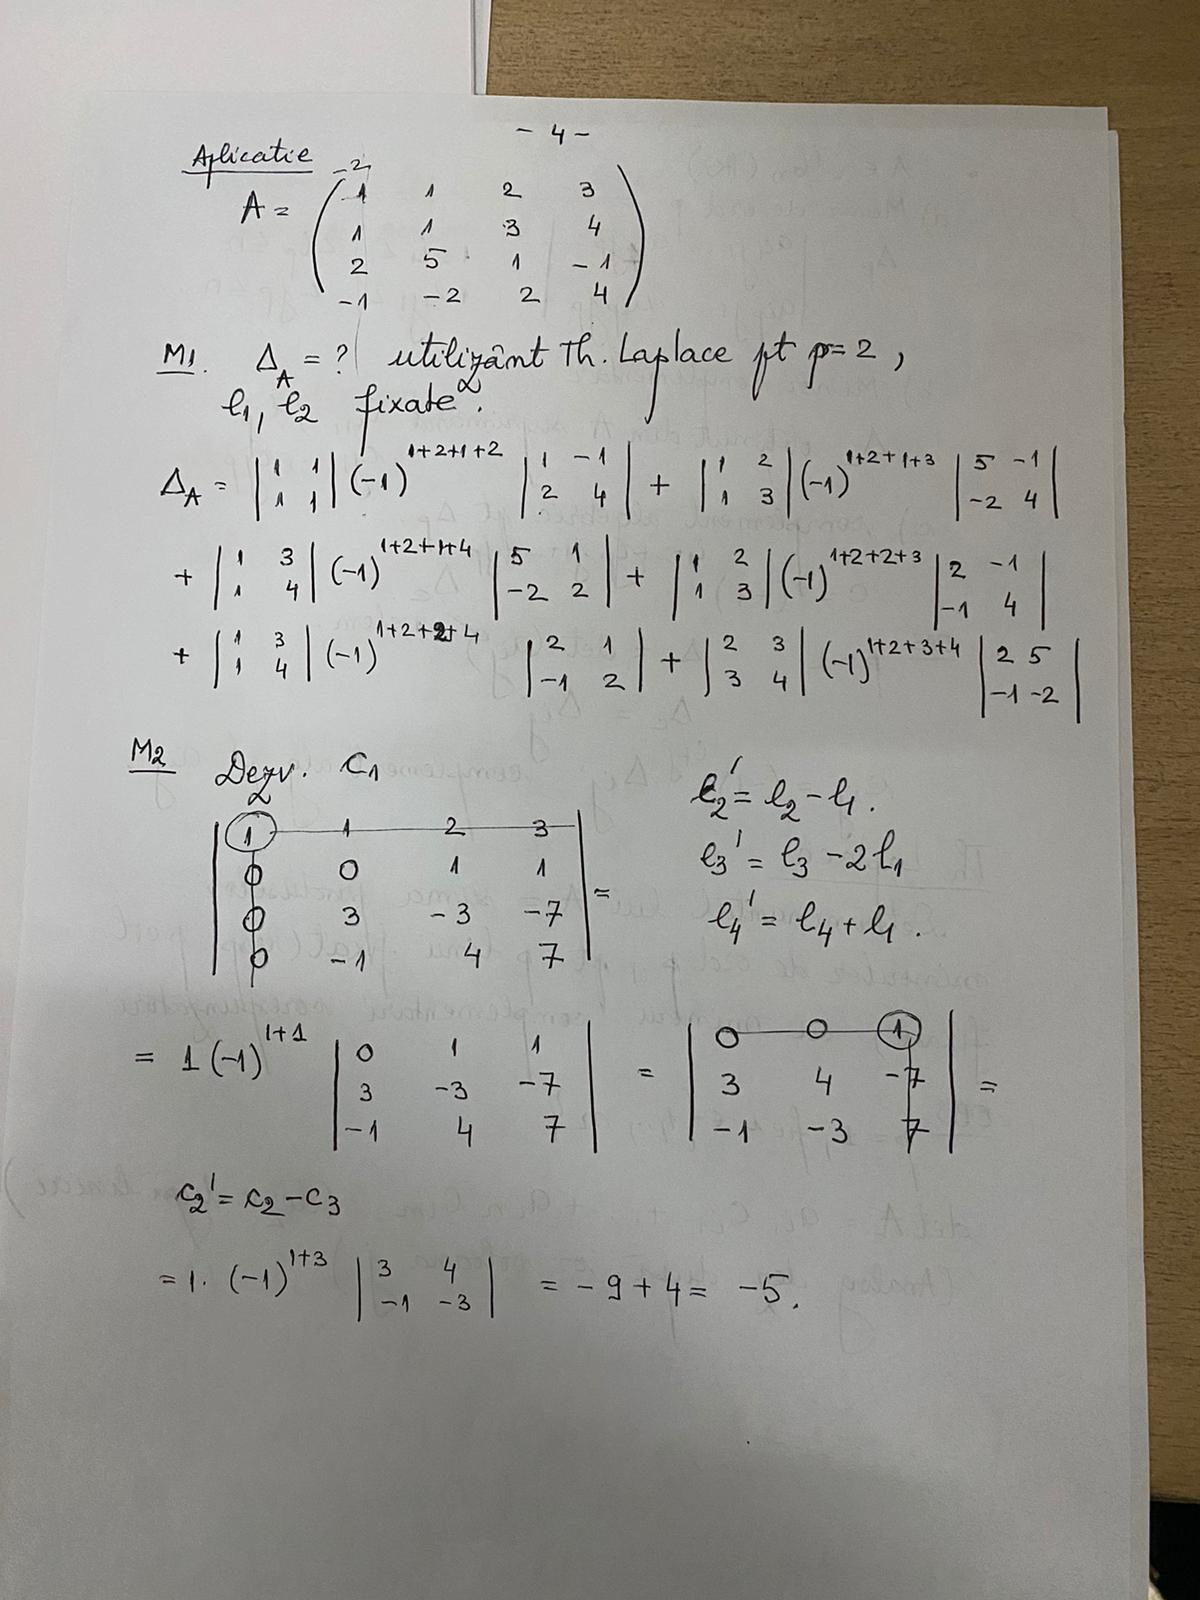 - 4 -
Aplicatie
A = ( 1 1 2 3
1 1 3 4
2 5 1 -1
-1 -2 2 4 )
M1. Δ_A = ? utilizânt Th. Laplace pt p=2,
l1, l2 fixate.
Δ_A = | 1 1 ; 1 1 | (-1)^{1+2+1+2} | 1 -1 ; 2 4 | + | 1 2 ; 1 3 | (-1)^{1+2+1+3} | 5 -1 ; -2 4 |
+ | 1 3 ; 1 4 | (-1)^{1+2+1+4} | 5 1 ; -2 2 | + | 1 2 ; 1 3 | (-1)^{1+2+2+3} | 2 -1 ; -1 4 |
+ | 1 3 ; 1 4 | (-1)^{1+2+2+4} | 2 1 ; -1 2 | + | 2 3 ; 3 4 | (-1)^{1+2+3+4} | 2 5 ; -1 -2 |
M2 Dezv. C1
| 1 1 2 3
0 0 1 1
0 3 -3 -7
0 -1 4 7 | =
l2' = l2 - l1.
l3' = l3 - 2l1
l4' = l4 + l1.
= 1 (-1)^{1+1} | 0 1 1 ; 3 -3 -7 ; -1 4 7 | = | 0 0 1 ; 3 4 -7 ; -1 -3 7 | =
c2' = c2 - c3
= 1. (-1)^{1+3} | 3 4 ; -1 -3 | = -9 + 4 = -5.